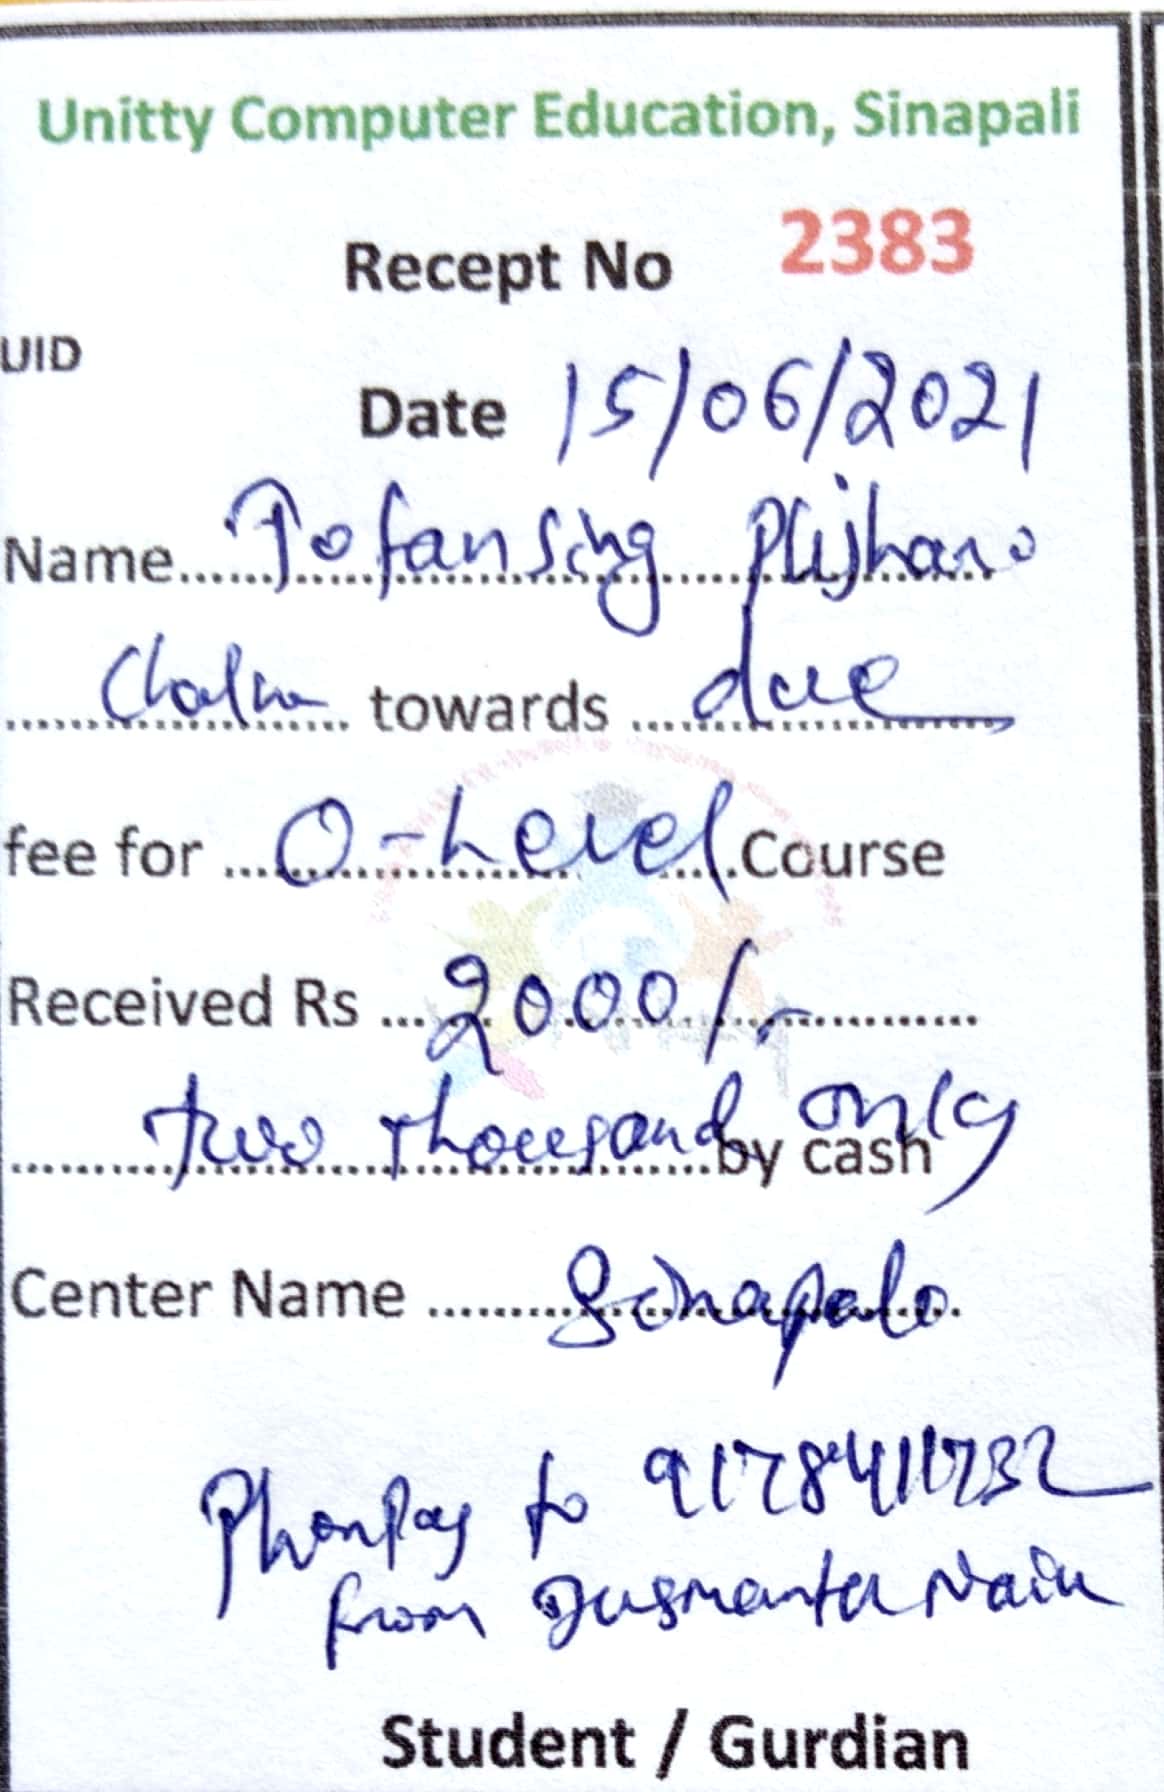 Unitty Computer Education, Sinapali
Recept No 2383
UID
Date 15/06/2021
Name.......Tofansing
.................... towards ....due
fee for ....O-Level.Course
Received Rs ...2000/-............
two thousand only
.............................by cash
Center Name ........Sinapali.
PhonPay to 9178411732
from Dusmanta Naik
Student / Gurdian